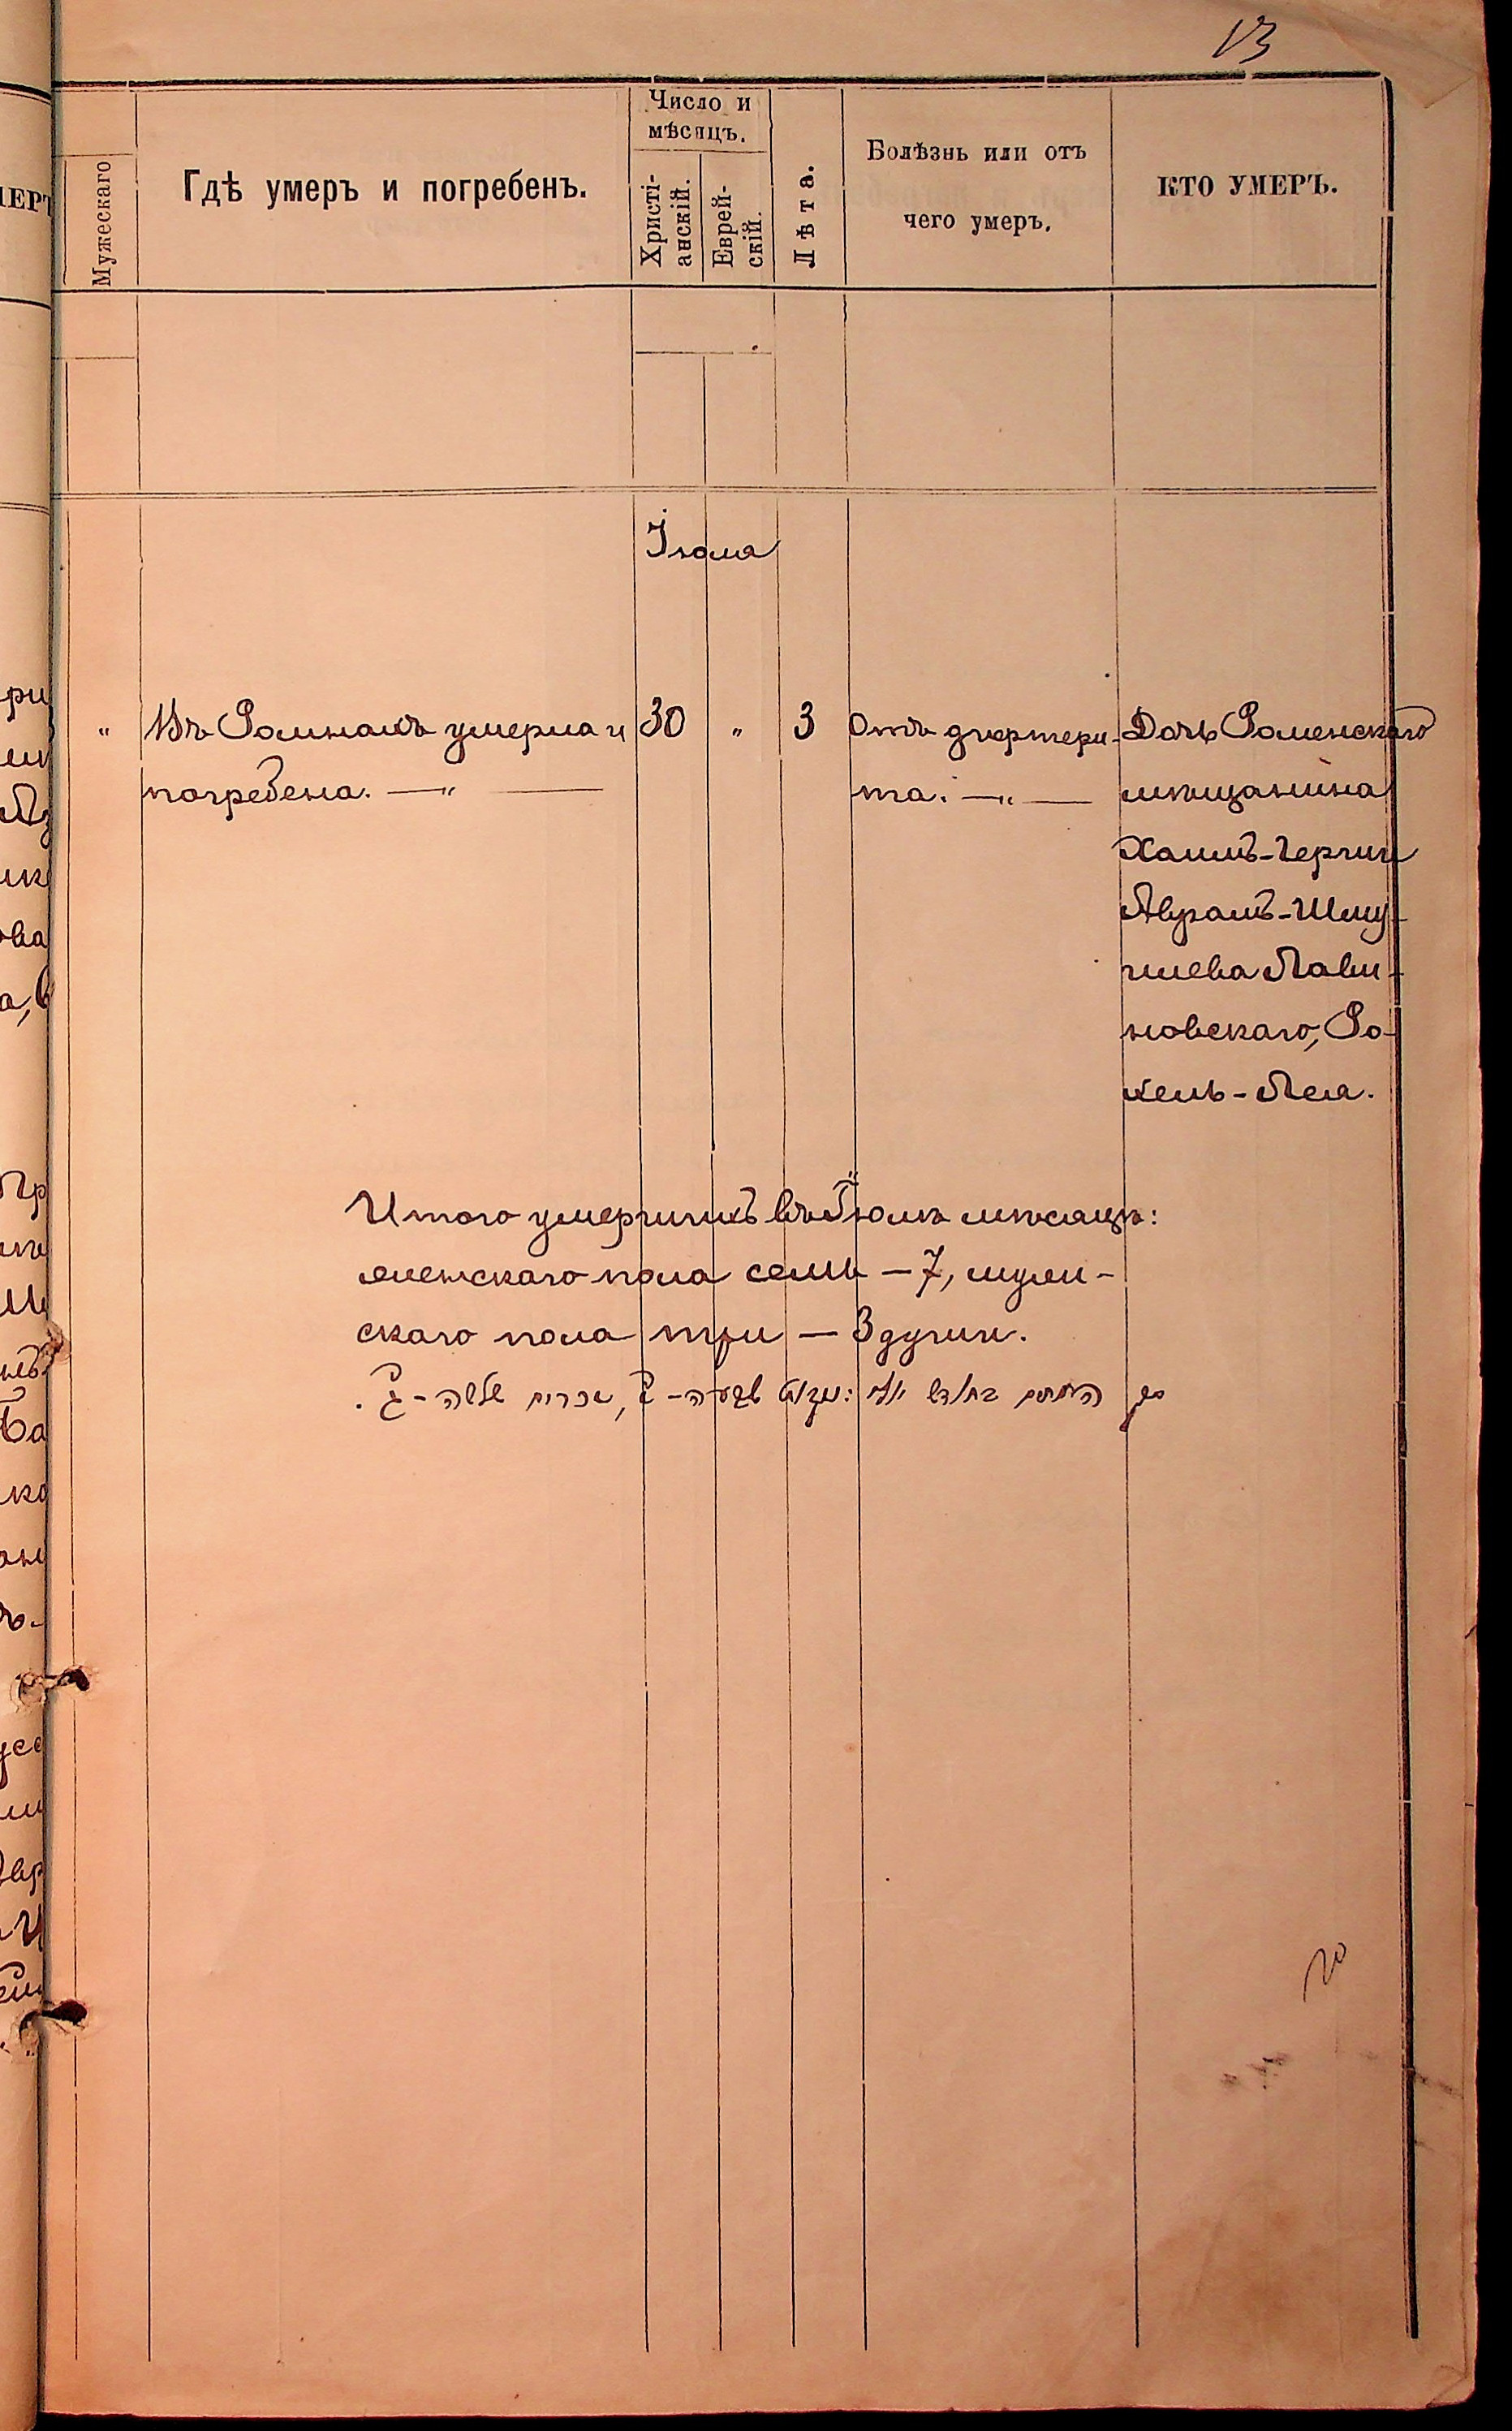 13
Мужескаго
Гдѣ умеръ и погребенъ.
Число и
мѣсяцъ.
Христі-
анскій.
Еврей-
скій.
Лѣта.
Болѣзнь или отъ
чего умеръ.
КТО УМЕРЪ.
Іюля
" Въ Ромнахъ умерла и 30 " 3 Отъ дифтери- Дочь Роменскаго
погребена. — " — та. — " — мѣщанина
Хаимъ-Герши
Аврамъ-Шму-
илева Лави-
новскаго, Ро-
хель-Лея.
Итого умершихъ въ Іюлѣ мѣсяцѣ:
женскаго пола семь — 7, муж-
скаго пола три — 3 души.